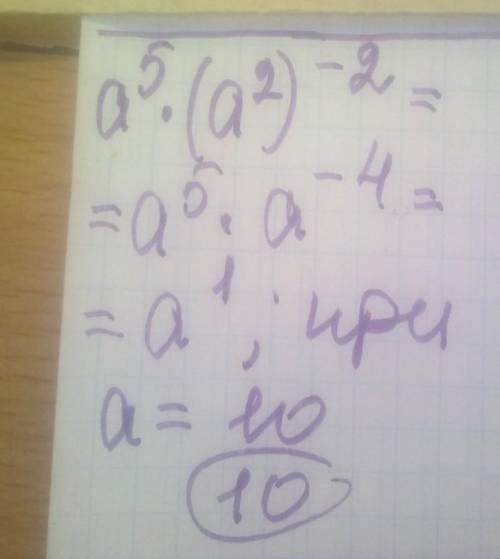 a⁵·(a²)⁻² =
= a⁵· a⁻⁴ =
= a¹, при
a = 10
10